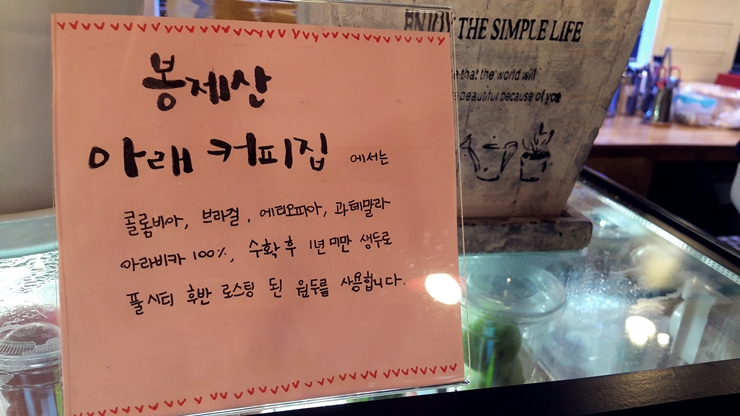 봉제산
아래 커피집 에서는
콜롬비아, 브라질, 에티오피아, 과테말라
아라비카 100%, 수확 후 1년 미만 생두로
풀 시티 후반 로스팅 된 원두를 사용합니다.
ENJOY THE SIMPLE LIFE
that the world will
beautiful because of you